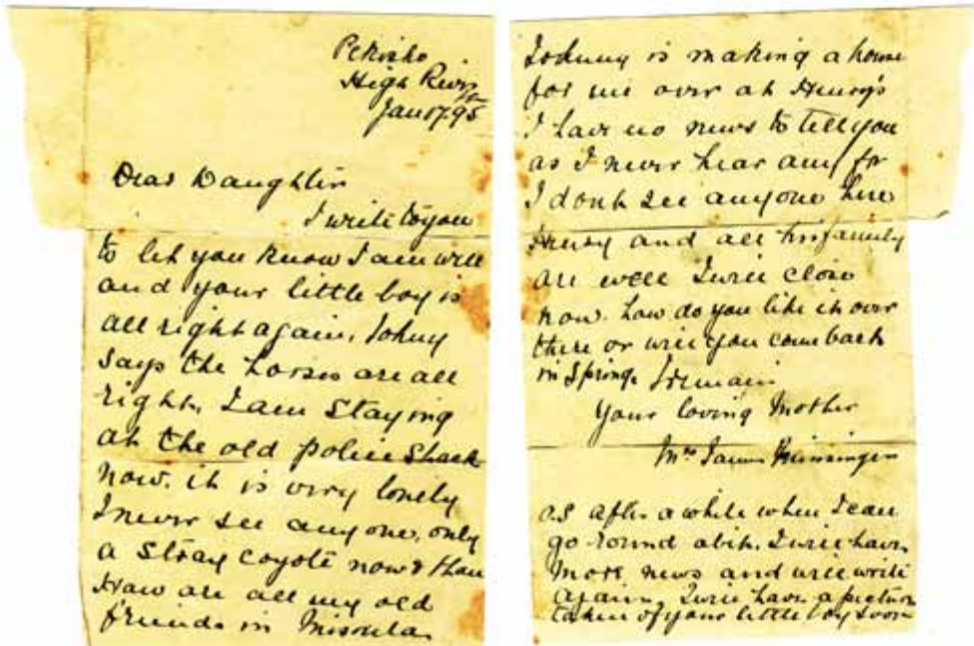 Pekisko
High River
Jan 17th 95
Dear Daughter
I write to you
to let you know I am well
and your little boy is
all right again, Johny
says the horses are all
right, I am staying
at the old police shack
now. it is very lonely
I never see anyone, only
a stray coyote now & then
How are all my old
friends in Misoula
Johnny is making a home
for me over at Henry's
I have no news to tell you
as I never hear any for
I dont see anyone here
Henry and all his family
are well I will close
now. how do you like it over
there or will you come back
in Spring I remain
Your loving Mother
Mrs James
as after a while when I can
go round a bit. I will have
more news and will write
again, I will have a picture
taken of your little boy soon